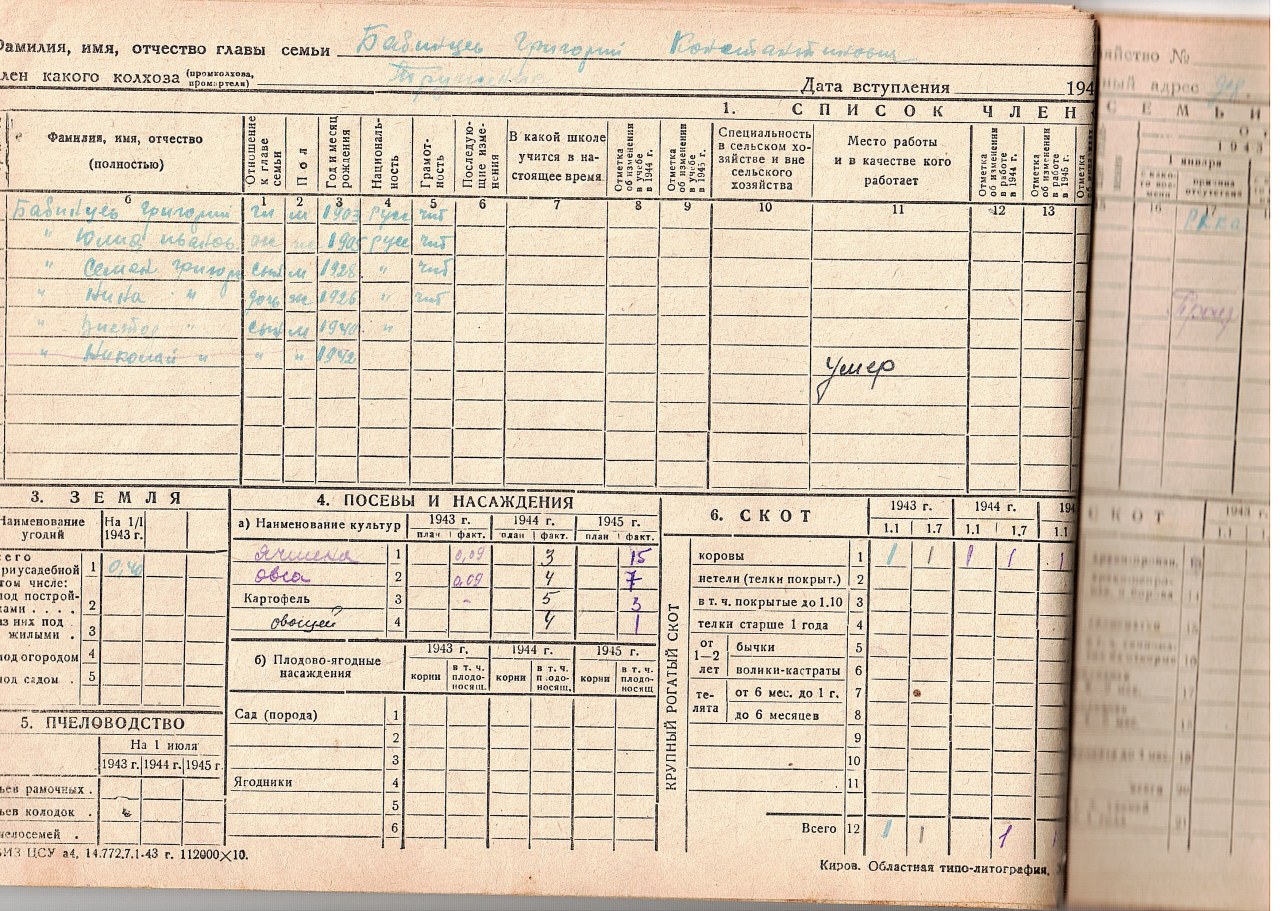 Фамилия, имя, отчество главы семьи Бабинцев Григорий Константинович
член какого колхоза (промколхоза, промартели)
Дата вступления 194
1. СПИСОК ЧЛЕН
Фамилия, имя, отчество (полностью)
Отношение к главе семьи
Пол
Год и месяц рождения
Националь-ность
Грамот-ность
Последую-щие изме-нения
В какой школе учится в на-стоящее время
Отметка об изменении в учебе в 1944 г.
Отметка об изменении в учебе в 1945 г.
Специальность в сельском хо-зяйстве и вне сельского хозяйства
Место работы и в качестве кого работает
Отметка об изменении в работе в 1944 г.
Отметка об изменении в работе в 1945 г.
Отметка
б 1 2 3 4 5 6 7 8 9 10 11 12 13
Бабинцев Григорий гл м 1903 русс чит
" Юлия Иванов. ж 1905 русс чит
" Семен Григор сын м 1928 " чит
" Нина " дочь ж 1926 " чит
" Виктор " сын м 1940 "
" Николай " " " 1942 умер
3. ЗЕМЛЯ
Наименование угодий
На 1/I 1943 г.
всего приусадебной 1 0,40
том числе:
под построй-ками . . . . 2
из них под жилыми . 3
под огородом 4
под садом . 5
5. ПЧЕЛОВОДСТВО
На 1 июля
1943 г. 1944 г. 1945 г.
ьев рамочных .
ьев колодок .
челосемей .
4. ПОСЕВЫ И НАСАЖДЕНИЯ
а) Наименование культур 1943 г. 1944 г. 1945 г.
план факт. план факт. план факт.
Ячменя 1 0,09 3 15
овса 2 0,09 4 7
Картофель 3 - 5 3
овощей 4 4 1
б) Плодово-ягодные насаждения 1943 г. 1944 г. 1945 г.
корни в т. ч. плодо-носящ. корни в т. ч. плодо-носящ. корни в т. ч. плодо-носящ
Сад (порода) 1
2
3
Ягодники 4
5
6
6. СКОТ 1943 г. 1944 г. 194
1.1 1.7 1.1 1.7 1.1
КРУПНЫЙ РОГАТЫЙ СКОТ
коровы 1 1 1 1 1 1
нетели (телки покрыт.) 2
в т. ч. покрытые до 1.10 3
телки старше 1 года 4
от 1—2 лет бычки 5
волики-кастраты 6
те-лята от 6 мес. до 1 г. 7
до 6 месяцев 8
9
10
11
Всего 12 1 1 1 1
ИЗ ЦСУ а4. 14.772.7.1-43 г. 112000×10.
Киров. Областная типо-литография.
яйство №
ный адрес
СЕМЬИ
1943
1 января
16 17
РККА
СКОТ
1943 г.
1.1 1.7